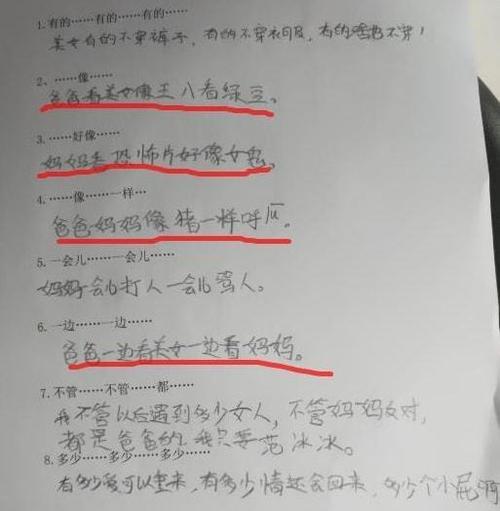 1. 有的……有的……有的……
美女有的不穿裤子，有的不穿衣服，有的啥也不穿！
2、……像……
爸爸看美女像王八看绿豆。
3. ……好像……
妈妈看恐怖片好像女鬼。
4. ……像……一样…
爸爸妈妈像猪一样呼瓜。
5. 一会儿……一会儿……
妈妈一会儿打人一会儿骂人。
6. 一边……一边……
爸爸一边看美女一边看妈妈。
7. 不管……不管……都……
我不管以后遇到多少女人，不管妈妈反对，
都是爸爸的，我只要范冰冰。
8. 多少……多少……多少……
有多少爱可以重来，有多少情还会回来，多少个小屁